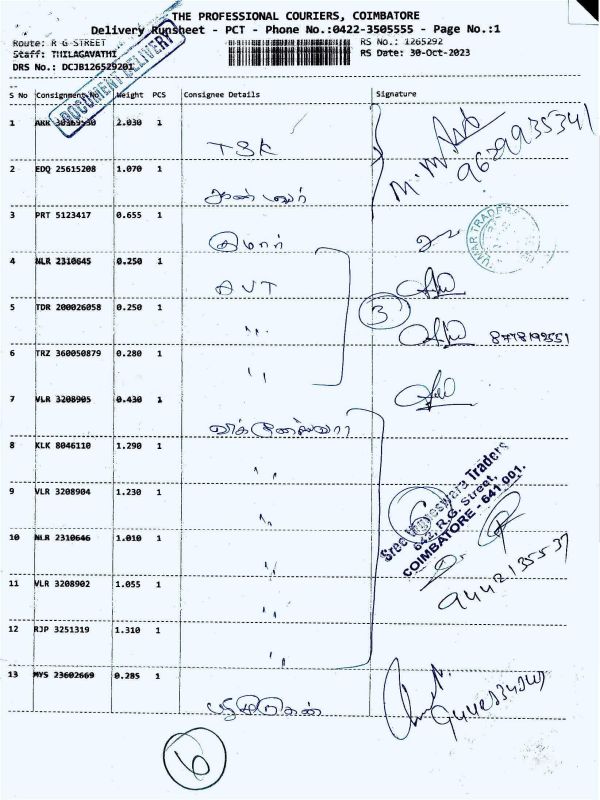 THE PROFESSIONAL COURIERS, COIMBATORE
Delivery Runsheet - PCT - Phone No.:0422-3505555 - Page No.:1
Route: R G STREET
RS No.: 1265292
Staff: THILAGAVATHI
RS Date: 30-Oct-2023
DRS No.: DCJB126529201
DOCUMENT DELIVERY
S No Consignment No Weight PCS Consignee Details Signature
1 ARK 30369530 2.030 1 TSK
9629935341
2 EDQ 25615208 1.070 1
3 PRT 5123417 0.655 1 குமார்
4 NLR 2310645 0.250 1 AVT
3
5 TDR 200026058 0.250 1 " 8778199551
6 TRZ 360050879 0.280 1 "
7 VLR 3208905 0.430 1
8 KLK 8046110 1.290 1 "
9 VLR 3208904 1.230 1 "
Sree Vigneswara Traders
642, R.G. Street,
COIMBATORE - 641 001.
10 NLR 2310646 1.010 1 "
9442135537
11 VLR 3208902 1.055 1 "
12 RJP 3251319 1.310 1 "
13 MYS 23602669 0.285 1
6